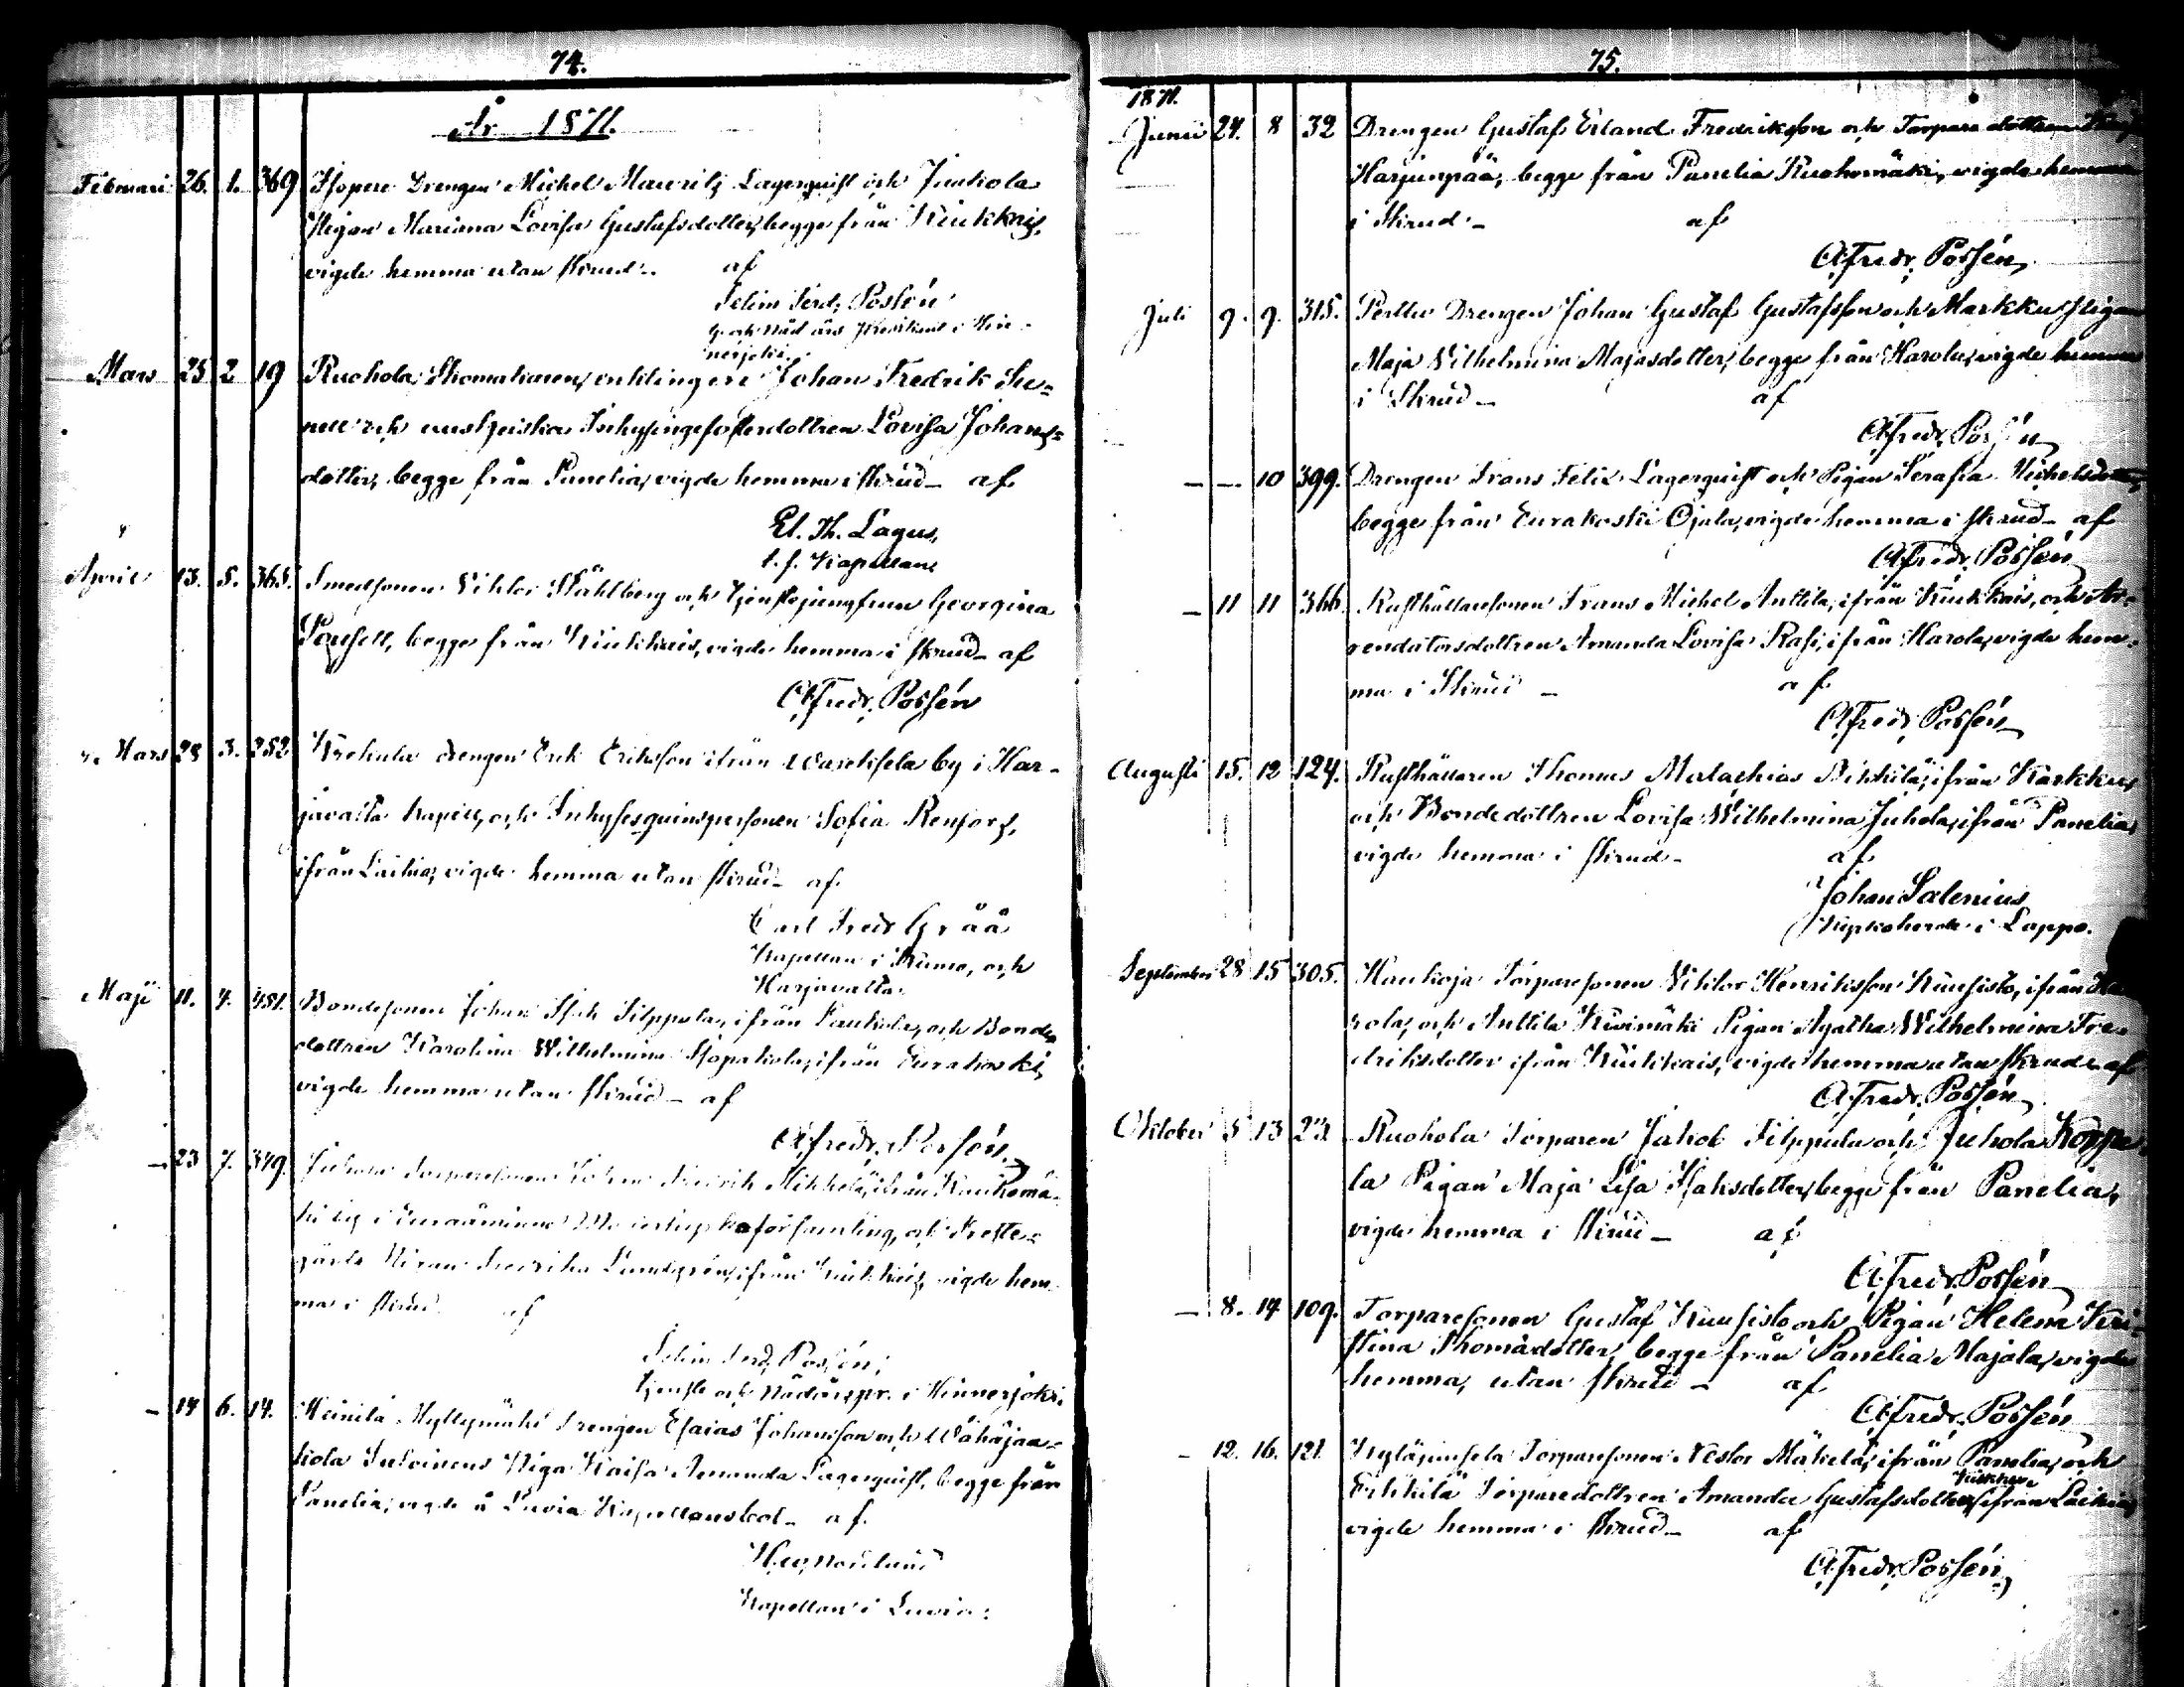 74.
År 1871.
Februari 26. 1. 369 Isopere Drengen Michel Mauritz Lagerquist och Junkola
Pigan Mariana Lovisa Gustafsdotter, begge från Kiukkais,
vigde hemma utan skrud.. af
Selim Ferd. Possén
tj. och Nåd. års Predikant i Hin-
nerjoki.
Mars 25 2 19 Ruohola Skomakaren, enklingen Johan Fredrik Su-
nell och Inhysingefosterdottren Lovisa Johans-
dotter, begge från Panelia, vigde hemma i skrud _ af
El. Th. Lagus,
t.f. Kapellan
April 13. 5. 365. Smedsonen Viktor Ståhlberg och Tjenstejungfrun Georgina
begge från Kiukkais, vigde hemma i skrud _ af
A. Fredr. Possén
Mars 28 3. 252 drengen Erik Eriksson ifrån by i Har-
javalta kapell, och Inhysesqvinspersonen Sofia Renfors,
ifrån Laihia, vigde hemma utan skrud _ af
Carl Fredr. Gråå
Kapellan i Kumo, och
Harjavalta.
Maji 11. 4. 451. Bondesonen Johan Isak Filppula, ifrån och Bonde-
dottren Karolina Wilhelmina ifrån Eurakoski,
vigde hemma utan skrud _ af
A. Fredr. Possén
_ 23 7. 349. Torparesonen Johan Fredrik Mikkelä, ifrån
by i Euraåminne församling, och
Pigan Fredrika Lundgrén, ifrån Kiukkais, vigde hem-
ma i skrud af
Selim Ferd. Possén,
Tjenste och Nådårspr. i Hinnerjoki.
_ 14 6. 14. Heinilä Myllymäki Drengen Esaias Johansson och Wähäjaa-
kola Piga Kaisa Amanda Lagerquist, begge från
Panelia, vigde å Luvia Kapellansbol _ af
Nordlund
Kapellan i Luvia.
75.
1871.
Junii 24. 8 32 Drengen Gustaf Erland Fredriksson och Torpare dottren
Harjunpää, begge från Panelia Ruohomäki, vigde hemma
i Skrud _ af
A. Fredr. Possén
Juli 9. 9. 315. Perttu Drengen Johan Gustaf Gustafsson och Markku Pigan
Maja Vilhelmina Majasdotter, begge från Harola, vigde hemma
i Skrud _ af
A. Fredr. Possén
_ _ 10 399. Drengen Frans Felix Lagerquist och Pigan Serafia Michelsdotter,
begge från Eurakoski Ojala, vigde hemma i skrud _ af
A. Fredr. Possén
_ 11 11 366. Rusthållaresonen Frans Michel Anttila, ifrån Kiukkais, och Ar-
rendatorsdottren Amanda Lovisa Rasi, ifrån Harola, vigde hem-
ma i Skrud _ af
A. Fredr. Possén
Augusti 15. 12 124. Rusthållaren Thomas Malachias ifrån
och Bondedottren Lovisa Wilhelmina Juhola, ifrån Panelia,
vigde hemma i skrud _ af
Johan Salenius
Kyrkoherde i Lappo.
September 28 15 305. Haukoja Torparesonen Viktor Henriksson Kuusisto, ifrån Ha-
rola, och Anttila Kivimäki Pigan Agatha Wilhelmina Fre-
driksdotter ifrån Kiukkais, vigde hemma utan skrud _ af
A. Fredr. Possén
Oktober 5 13 23. Ruohola Torparen Jakob Filppula och Juhola
la Pigan Maja Lisa Isaksdotter, begge från Panelia,
vigde hemma i skrud _ af
A. Fredr. Possén
_ 8. 14 109. Torparesonen Gustaf Kuusisto och Pigan Helena Kri-
stina Thomædotter, begge från Panelia Majala, vigde
hemma, utan skrud _ af
A. Fredr. Possén
_ 12. 16. 121 Torparesonen Nestor Mäkelä, ifrån Panelia, och
Erkkilä Torparedottren Amanda Gustafsdotter, ifrån
vigde hemma i skrud _ af
A. Fredr. Possén